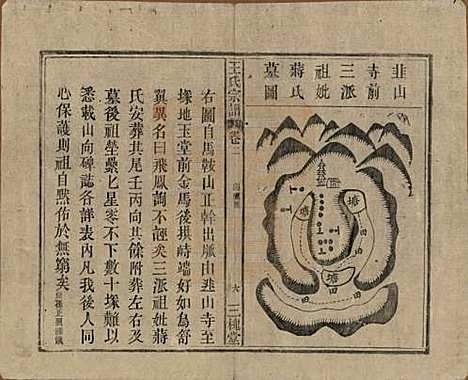 韭山
寺前
三派
祖妣
蔣氏
墓圖
塘
塘
田
田
田
田
王氏宗譜
卷
六
三槐堂
右圖自馬鞍山正幹出脈由韭山寺至
塚地玉堂前金馬後拱峙端好如鳥舒
翼翼名曰飛鳳詢不誣矣三派祖妣蔣
氏安葬其尾壬丙向其餘附葬左右及
墓後祖塋纍七星零不下數十塚難以
悉載山向碑誌各詳表內凡我後人同
心保護則祖自默佑於無窮矣